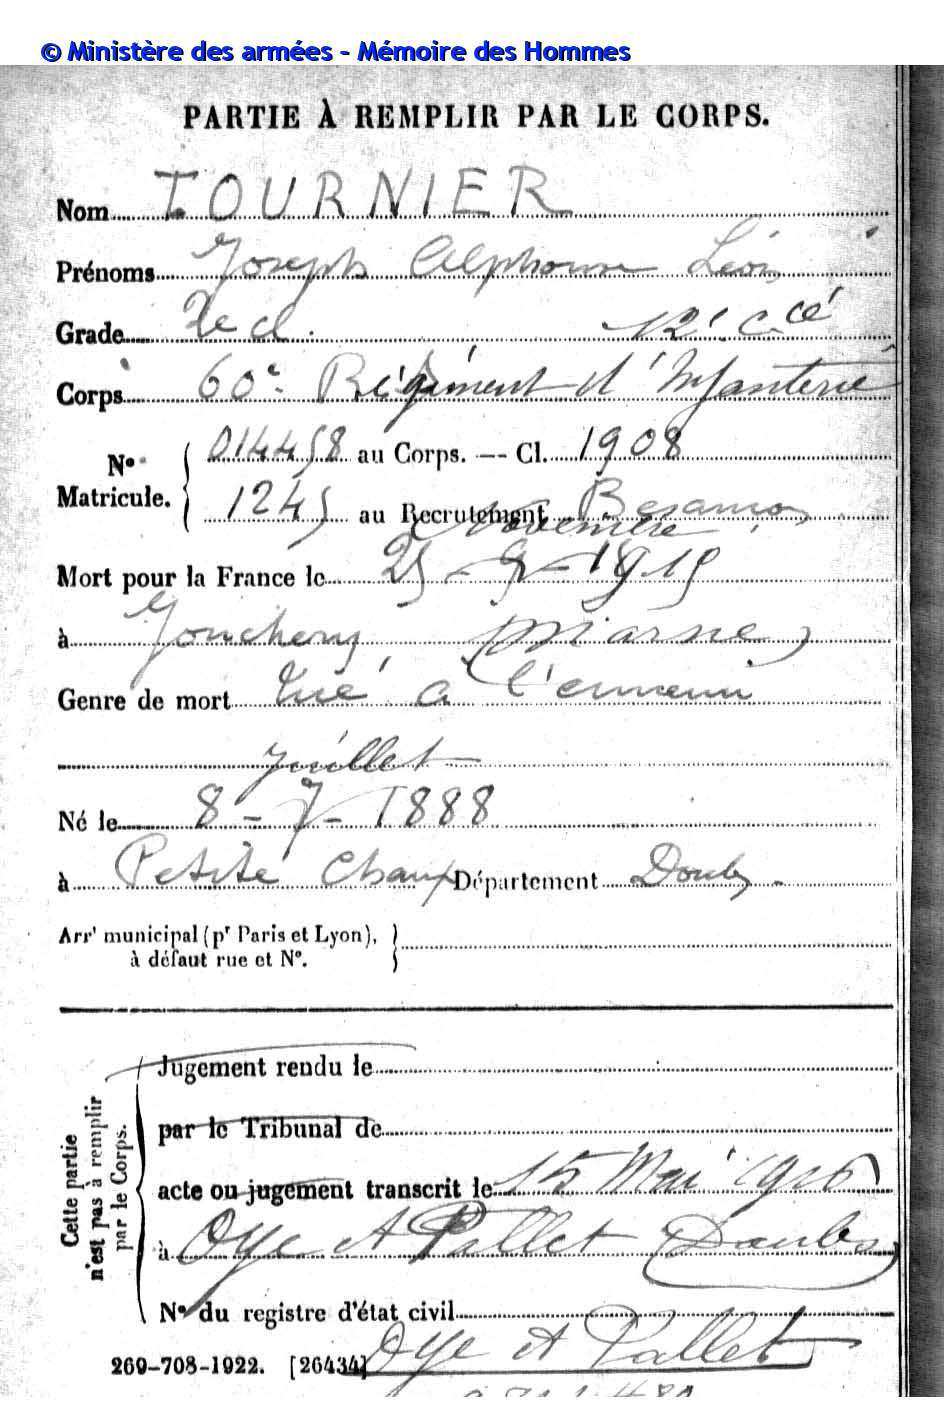 © Ministère des armées - Mémoire des Hommes
PARTIE À REMPLIR PAR LE CORPS.
Nom TOURNIER
Prénoms Joseph Alphonse Léon
Grade 2e cl. 12e Cie
Corps 60e Régiment d'Infanterie
No Matricule. 014458 au Corps. — Cl. 1908
1245 au Recrutement Besançon
Mort pour la France le 25-9-1915
à Jonchery (Marne)
Genre de mort Tué à l'ennemi
juillet
Né le 8-7-1888
à Petite Chaux Département Doubs
Arrt municipal (pr Paris et Lyon),
à défaut rue et N°.
Cette partie n'est pas à remplir par le Corps.
Jugement rendu le
par le Tribunal de
acte ou jugement transcrit le 15 Mai 1916
à Oye et Pallet (Doubs)
N° du registre d'état civil
Oye et Pallet
269-708-1922. [26434]